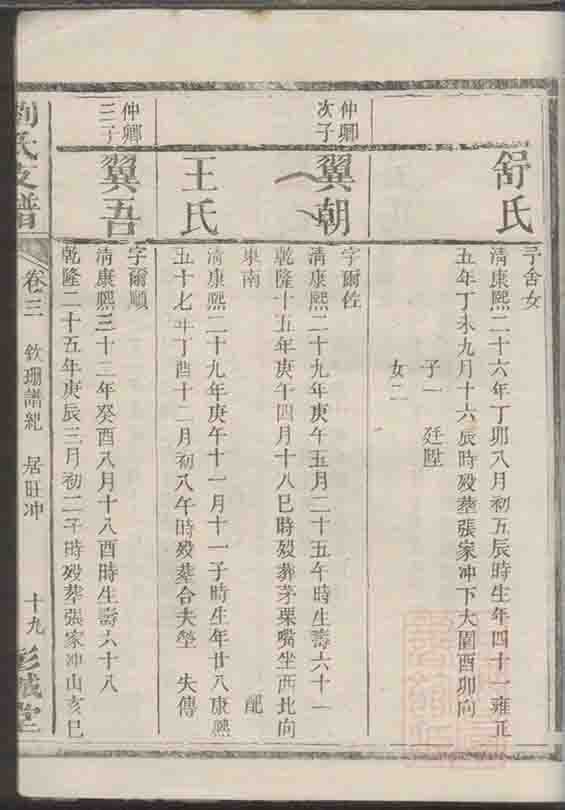 舒氏
子舍女
清康熙二十六年丁卯八月初五辰時生年四十一雍正
五年丁未九月十六辰時歿葬張家冲下大園酉卯向
子一 廷陞
女二
仲卿
次子
翼朝
字爾佐
清康熙二十九年庚午五月二十五午時生壽六十一
乾隆十五年庚午四月十八巳時歿葬茅栗嘴坐西北向
東南 配
王氏
清康熙二十九年庚午十一月十一子時生年廿八康熙
五十七年丁酉十二月初八午時歿葬合夫塋 失傳
仲卿
三子
翼吾
字爾順
清康熙三十二年癸酉八月十八酉時生壽六十八
乾隆二十五年庚辰三月初二子時歿葬張家冲山亥巳
劉氏支譜 卷三 欽珊譜紀 居旺冲 十九 彭城堂